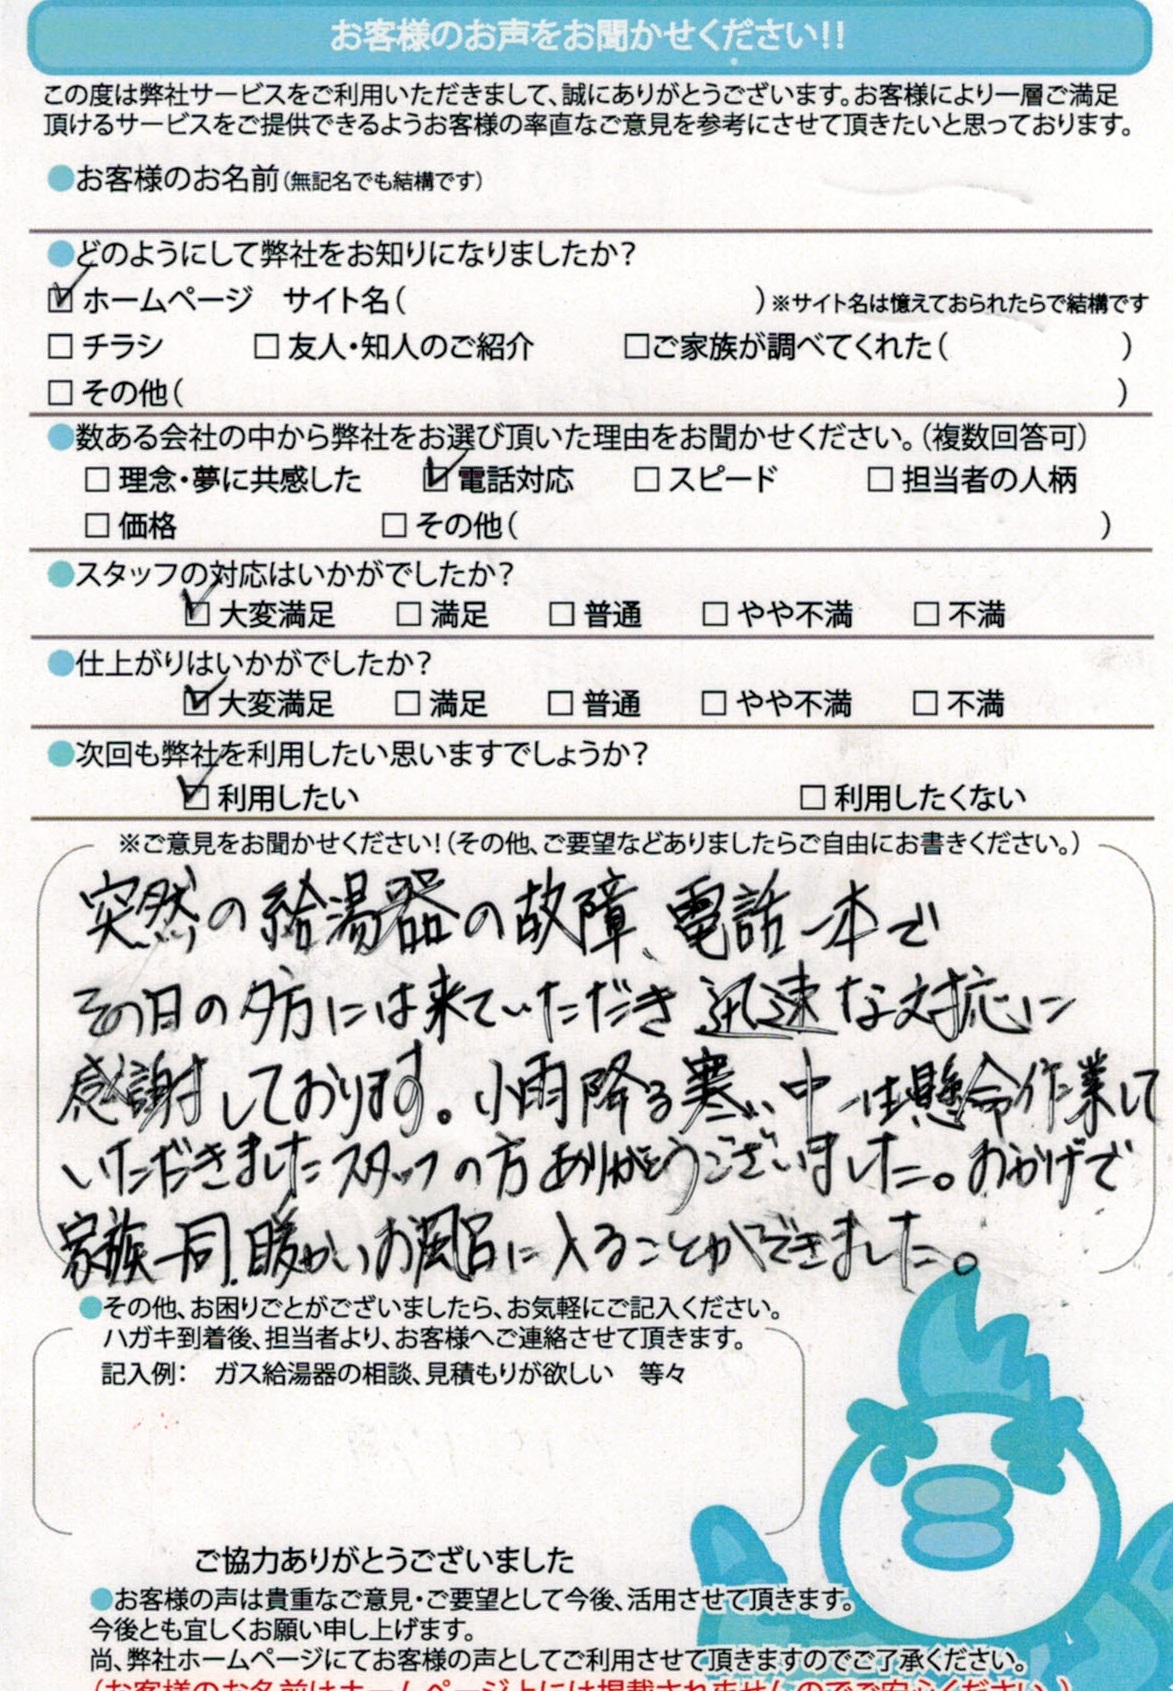 お客様のお声をお聞かせください!!
この度は弊社サービスをご利用いただきまして、誠にありがとうございます。お客様により一層ご満足
頂けるサービスをご提供できるようお客様の率直なご意見を参考にさせて頂きたいと思っております。
●お客様のお名前(無記名でも結構です)
●どのようにして弊社をお知りになりましたか?
☑ ホームページ　サイト名(　　　)※サイト名は憶えておられたらで結構です
□ チラシ　□ 友人・知人のご紹介　□ご家族が調べてくれた(　　　)
□ その他(　　　)
●数ある会社の中から弊社をお選び頂いた理由をお聞かせください。(複数回答可)
□ 理念・夢に共感した　☑ 電話対応　□ スピード　□ 担当者の人柄
□ 価格　□ その他(　　　)
●スタッフの対応はいかがでしたか?
☑ 大変満足　□ 満足　□ 普通　□ やや不満　□ 不満
●仕上がりはいかがでしたか?
☑ 大変満足　□ 満足　□ 普通　□ やや不満　□ 不満
●次回も弊社を利用したい思いますでしょうか?
☑ 利用したい　□ 利用したくない
※ご意見をお聞かせください!(その他、ご要望などありましたらご自由にお書きください。)
突然の給湯器の故障、電話一本で
その日の夕方には来ていただき迅速な対応に
感謝しております。小雨降る寒い中一生懸命作業して
いただきましたスタッフの方ありがとうございました。おかげで
家族一同、暖かいお風呂に入ることができました。
●その他、お困りごとがございましたら、お気軽にご記入ください。
ハガキ到着後、担当者より、お客様へご連絡させて頂きます。
記入例:　ガス給湯器の相談、見積もりが欲しい　等々
ご協力ありがとうございました
●お客様の声は貴重なご意見・ご要望として今後、活用させて頂きます。
今後とも宜しくお願い申し上げます。
尚、弊社ホームページにてお客様の声としてご利用させて頂きますのでご了承ください。
(お客様のお名前はホームページ上には掲載されませんのでご安心ください。)